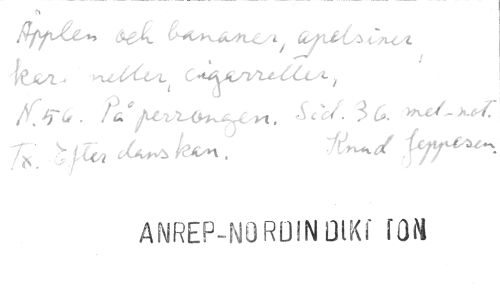 Äpplen och bananer, apelsiner,
kar netter, cigarretter,
N.56. På perrongen. Sid. 36. mel-not.
Tx. Efter danskan. Knud Jeppesen.
ANREP-NORDIN DIKT TON